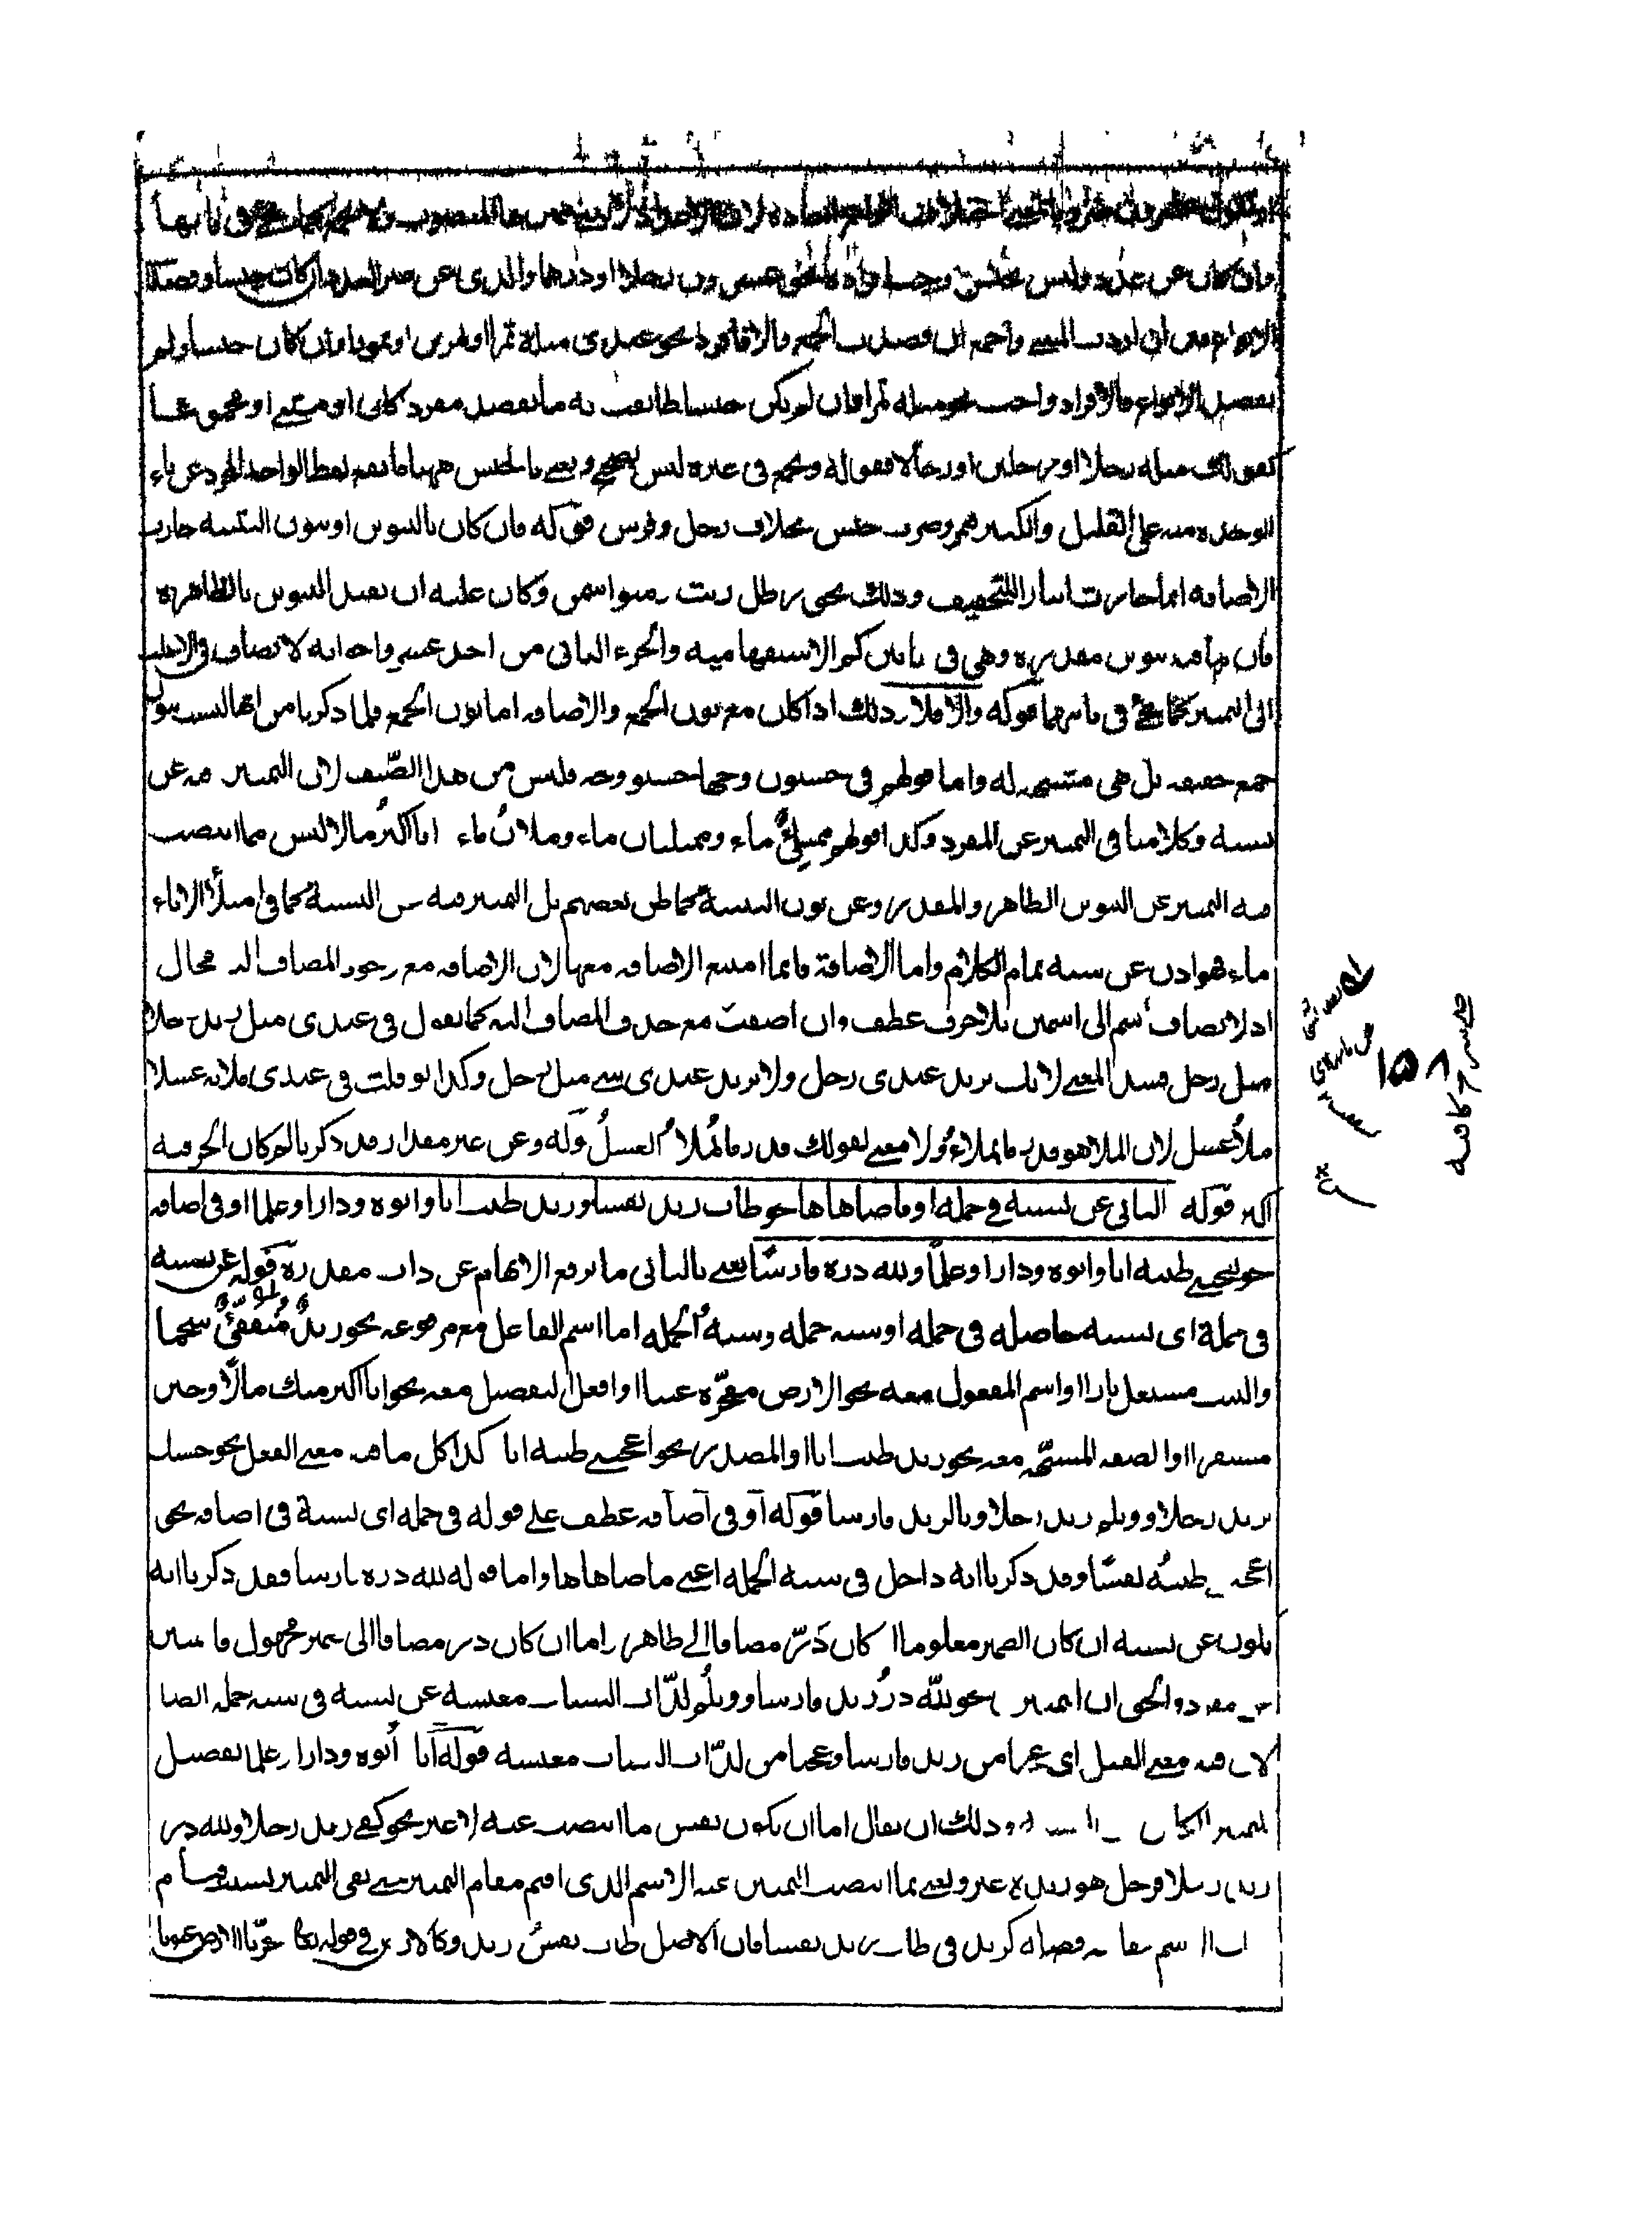 وان كان عن عدد وليس بجنس وجب افراده نحو عشرون رجلا او درهما والذى عن غير العدد ان كان جنسا وقصد
الانواع ان اردت المثنى والجمع ان قصدت الجمع والا فافرد نحو عندى مثله تمرا او تمرين او تمورا وان كان جنسا ولم
تقصد الانواع فالافراد واجب نحو مثله تمرا فان لم يكن جنسا طابقت به ما تقصد مفرد كان او مثنى او مجموعا
كقولك مثله رجلا او رجلين او رجالا فقوله ويجمع فى غيره ليس بصحيح ونعنى بالجنس ههنا ما يقع لفظ الواحد المجرد عن تاء
الوحدة منه على القليل والكثير كتمر وضرب جنس بخلاف رجل وفرس قوله فان كان بالتنوين او بنون التثنية جازت
الاضافة انما جازت ايثارا للتخفيف وذلك نحو رطل زيت ومنوا سمن وكان عليه ان يقيد التنوين بالظاهرة
فان ما فيه تنوين مقدرة وهى فى بابين كم الاستفهامية والجزء الثانى من احد عشر واخواته لا تضاف فى الاغلب
الى المميز كما يجئ فى بابهما قوله والا فلا وذلك اذا كان مع نون الجمع والاضافة اما نون الجمع فلما ذكرنا من انها ليست بنون
جمع حقيقة بل هى مشبهة له واما قولهم فى حسنون وجها حسنو وجه فليس من هذا الصنف لان التمييز فيه عن
نسبة وكلامنا فى التمييز عن المفرد وكذا قولهم ممتلئ ماء وممتلئان ماء وملآن ماء انا اكثر مالا ليس مما انتصب
فيه التمييز عن التنوين الظاهر والمقدر وعن نون التثنية كما ظن بعضهم بل التمييز فيه عن النسبة كما فى امتلأ الاناء
ماء فهو اذن عن نسبة تمام الكلام واما الاضافة فانما امتنع الاضافة معها لان الاضافة مع وجود المضاف اليه محال
اذ لا يضاف اسم الى اسمين بلا حرف عطف وان اضفت مع حذف المضاف اليه كما تقول فى عندى مثل زيد رجلا
مثل رجل فسد المعنى لانك تريد عندى رجل ولا تريد عندى شئ مثل رجل وكذا لو قلت فى عندى ملأه عسلا
ملأ عسل لان الملأ هو قدر ما يملاء ولا معنى لقولك قدر ما يملأ العسل قوله وعن غير مقدار وقد ذكرنا لم كان الجر فيه
اكثر قوله الثانى عن نسبة فى جملة او ما ضاهاها نحو طاب زيد نفسا وزيد طيب ابا وابوة ودارا وعلما او فى اضافة
نحو يعجبنى طيبه ابا وابوة ودارا وعلما ولله دره فارسا يعنى بالثانى ما يرفع الابهام عن ذات مقدرة قوله عن نسبة
فى جملة اى نسبة حاصلة فى جملة او شبه جملة وشبه الجملة اما اسم الفاعل مع مرفوعه نحو زيد متفقئ شحما
والبيت مشتعل نارا او اسم المفعول معه نحو الارض مفجرة عيونا او افعل التفضيل معه نحو انا اكثر منك مالا وخير
مستقرا او الصفة المشبهة معه نحو زيد طيب ابا او المصدر نحو اعجبنى طيبه ابا كذا كل ما فيه معنى الفعل نحو حسبك
بزيد رجلا وويلم زيد رجلا ويا لزيد فارسا قوله او فى اضافة عطف على قوله فى جملة اى نسبة فى اضافة نحو
اعجبنى طيبه نفسا وقد ذكرنا انه داخل فى شبه الجملة اعنى ما ضاهاها واما قوله لله دره فارسا فقد ذكرنا انه
يكون عن نسبة ان كان الضمير معلوما او كان در مضافا الى ظاهر واما ان كان در مضافا الى ضمير مجهول فالتمييز
عن مفرد والحق ان التمييز نحو لله در زيد فارسا وويلم لذات الشباب معيشة عن نسبة فى شبه جملة ايضا
لان فيه معنى الفعل اى عجبا من زيد فارسا وعجبا من لذات الشباب معيشة قوله ابا وابوة ودارا وعلما تفصيل
للتمييز الكائن وذلك ان يقال اما ان يكون نفس ما انتصب عنه لا غير نحو كفى زيد رجلا ولله در
زيد رجلا فرجل هو زيد لا غير ونعنى بما انتصب التمييز عنه الاسم الذى اقيم مقام التمييز حتى بقى التمييز بسبب قيام
الاسم مقامه فضلة كزيد فى طاب زيد نفسا فان الاصل طاب نفس زيد وكالارض فى قوله تعالى فجرنا الارض عيونا
١٥٨